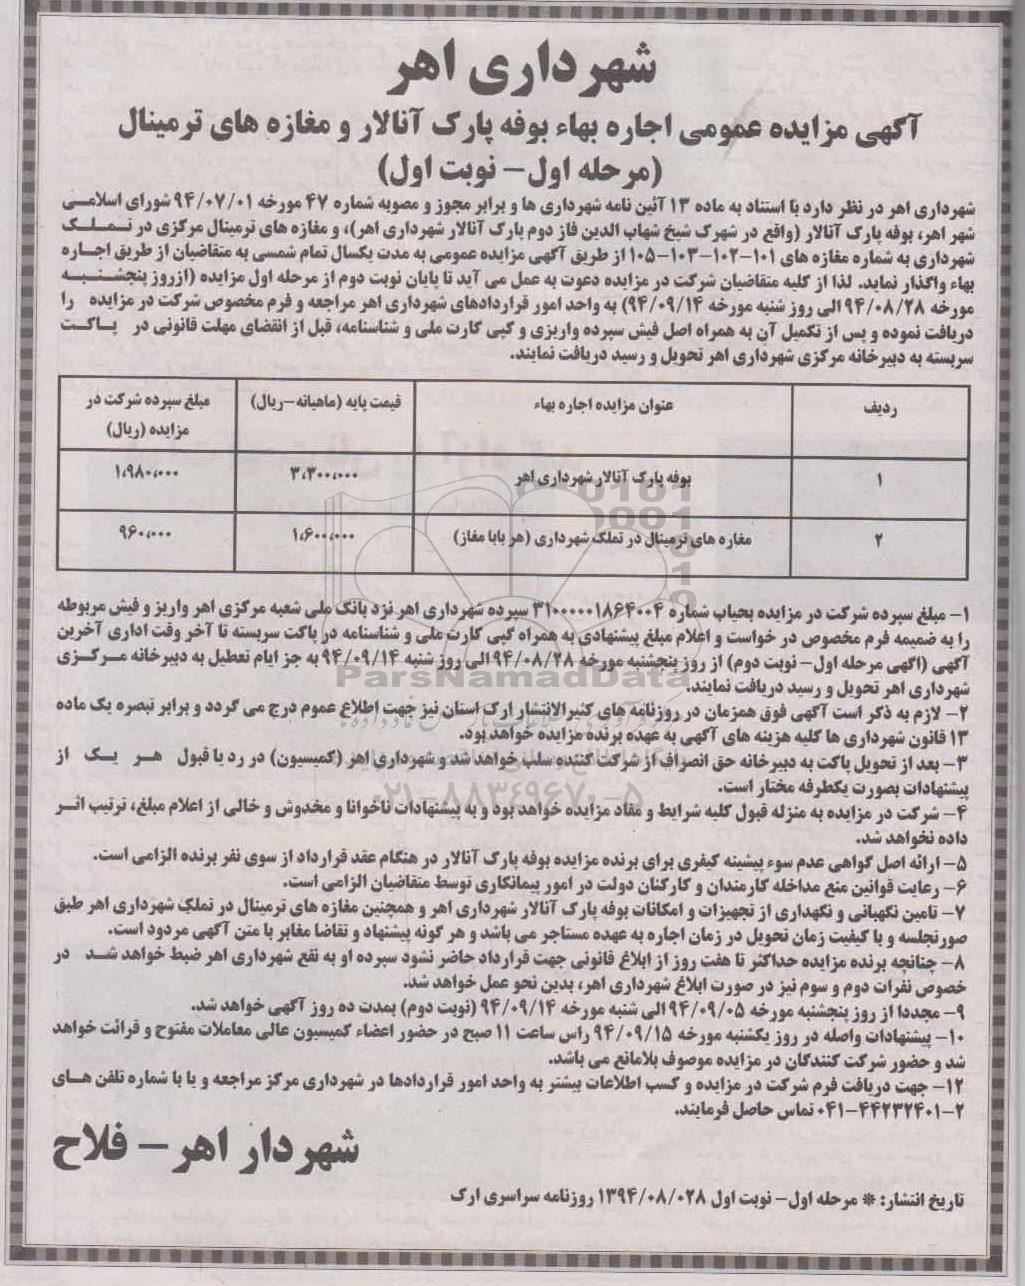 شهرداری اهر
آگهی مزایده عمومی اجاره بهاء بوفه پارک آنالار و مغازه های ترمینال
(مرحله اول- نوبت اول)
شهرداری اهر در نظر دارد با استناد به ماده ۱۳ آئین نامه شهرداری ها و برابر مجوز و مصوبه شماره ۴۷ مورخه ۹۴/۰۷/۰۱ شورای اسلامی
شهر اهر، بوفه پارک آنالار (واقع در شهرک شیخ شهاب الدین فاز دوم پارک آنالار شهرداری اهر)، و مغازه های ترمینال مرکزی در تملک
شهرداری به شماره مغازه های ۱۰۱-۱۰۲-۱۰۳-۱۰۵ از طریق آگهی مزایده عمومی به مدت یکسال تمام شمسی به متقاضیان از طریق اجاره
بهاء واگذار نماید. لذا از کلیه متقاضیان شرکت در مزایده دعوت به عمل می آید تا پایان نوبت دوم از مرحله اول مزایده (ازروز پنجشنبه
مورخه ۹۴/۰۸/۲۸ الی روز شنبه مورخه ۹۴/۰۹/۱۴) به واحد امور قراردادهای شهرداری اهر مراجعه و فرم مخصوص شرکت در مزایده را
دریافت نموده و پس از تکمیل آن به همراه اصل فیش سپرده واریزی و کپی کارت ملی و شناسنامه، قبل از انقضای مهلت قانونی در پاکت
سربسته به دبیرخانه مرکزی شهرداری اهر تحویل و رسید دریافت نمایند.
ردیف عنوان مزایده اجاره بهاء قیمت پایه (ماهیانه-ریال) مبلغ سپرده شرکت در
مزایده (ریال)
۱ بوفه پارک آنالار شهرداری اهر ۳،۳۰۰،۰۰۰ ۱،۹۸۰،۰۰۰
۲ مغازه های ترمینال در تملک شهرداری (هر بابا مغاز) ۱،۶۰۰،۰۰۰ ۹۶۰،۰۰۰
۱- مبلغ سپرده شرکت در مزایده بحیاب شماره ۳۱۰۰۰۰۰۱۸۶۴۰۰۴ سپرده شهرداری اهر نزد بانک ملی شعبه مرکزی اهر واریز و فیش مربوطه
را به ضمیمه فرم مخصوص در خواست و اعلام مبلغ پیشنهادی به همراه کپی کارت ملی و شناسنامه در پاکت سربسته تا آخر وقت اداری آخرین
آگهی (اگهی مرحله اول- نوبت دوم) از روز پنجشنبه مورخه ۹۴/۰۸/۲۸ الی روز شنبه ۹۴/۰۹/۱۴ به جز ایام تعطیل به دبیرخانه مرکزی
شهرداری اهر تحویل و رسید دریافت نمایند.
ParsNamadData
۲- لازم به ذکر است آگهی فوق همزمان در روزنامه های کثیرالانتشار ارک استان نیز جهت اطلاع عموم درج می گردد و برابر تبصره یک ماده
۱۳ قانون شهرداری ها کلیه هزینه های آگهی به عهده برنده مزایده خواهد بود.
۳- بعد از تحویل پاکت به دبیرخانه حق انصراف از شرکت کننده سلب خواهد شد و شهرداری اهر (کمیسیون) در رد یا قبول هر یک از
پیشنهادات بصورت یکطرفه مختار است.
۰۲۱-۸۸۳۴۹۶۷۰-۵
۴- شرکت در مزایده به منزله قبول کلیه شرایط و مفاد مزایده خواهد بود و به پیشنهادات ناخوانا و مخدوش و خالی از اعلام مبلغ، ترتیب اثر
داده نخواهد شد.
۵- ارائه اصل گواهی عدم سوء پیشینه کیفری برای برنده مزایده بوفه پارک آنالار در هنگام عقد قرارداد از سوی نفر برنده الزامی است.
۶- رعایت قوانین منع مداخله کارمندان و کارکنان دولت در امور پیمانکاری توسط متقاضیان الزامی است.
۷- تامین نگهبانی و نگهداری از تجهیزات و امکانات بوفه پارک آنالار شهرداری اهر و همچنین مغازه های ترمینال در تملک شهرداری اهر طبق
صورتجلسه و با کیفیت زمان تحویل در زمان اجاره به عهده مستاجر می باشد و هر گونه پیشنهاد و تقاضا مغایر با متن آگهی مردود است.
۸- چنانچه برنده مزایده حداکثر تا هفت روز از ابلاغ قانونی جهت قرارداد حاضر نشود سپرده او به نفع شهرداری اهر ضبط خواهد شد در
خصوص نفرات دوم و سوم نیز در صورت ابلاغ شهرداری اهر، بدین نحو عمل خواهد شد.
۹- مجددا از روز پنجشنبه مورخه ۹۴/۰۹/۰۵ الی شنبه مورخه ۹۴/۰۹/۱۴ (نوبت دوم) بمدت ده روز آگهی خواهد شد.
۱۰- پیشنهادات واصله در روز یکشنبه مورخه ۹۴/۰۹/۱۵ راس ساعت ۱۱ صبح در حضور اعضاء کمیسیون عالی معاملات مفتوح و قرائت خواهد
شد و حضور شرکت کنندگان در مزایده موصوف بلامانع می باشد.
۱۲- جهت دریافت فرم شرکت در مزایده و کسب اطلاعات بیشتر به واحد امور قراردادها در شهرداری مرکز مراجعه و یا با شماره تلفن های
۰۴۱-۴۴۲۳۲۴۰۱-۲ تماس حاصل فرمایند.
شهردار اهر - فلاح
تاریخ انتشار: * مرحله اول- نوبت اول ۱۳۹۴/۰۸/۰۲۸ روزنامه سراسری ارک